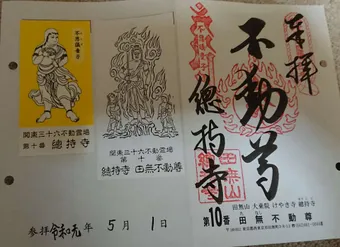 不思議童子
関東三十六不動霊場
第十番 總持寺
関東三十六不動霊場
第十番
總持寺 田無不動尊
奉拝
不動尊
總持寺
田無山
第10番 田無不動尊
田無山 大乗院 けやき寺 總持寺
参拝 令和元年 5月 1日